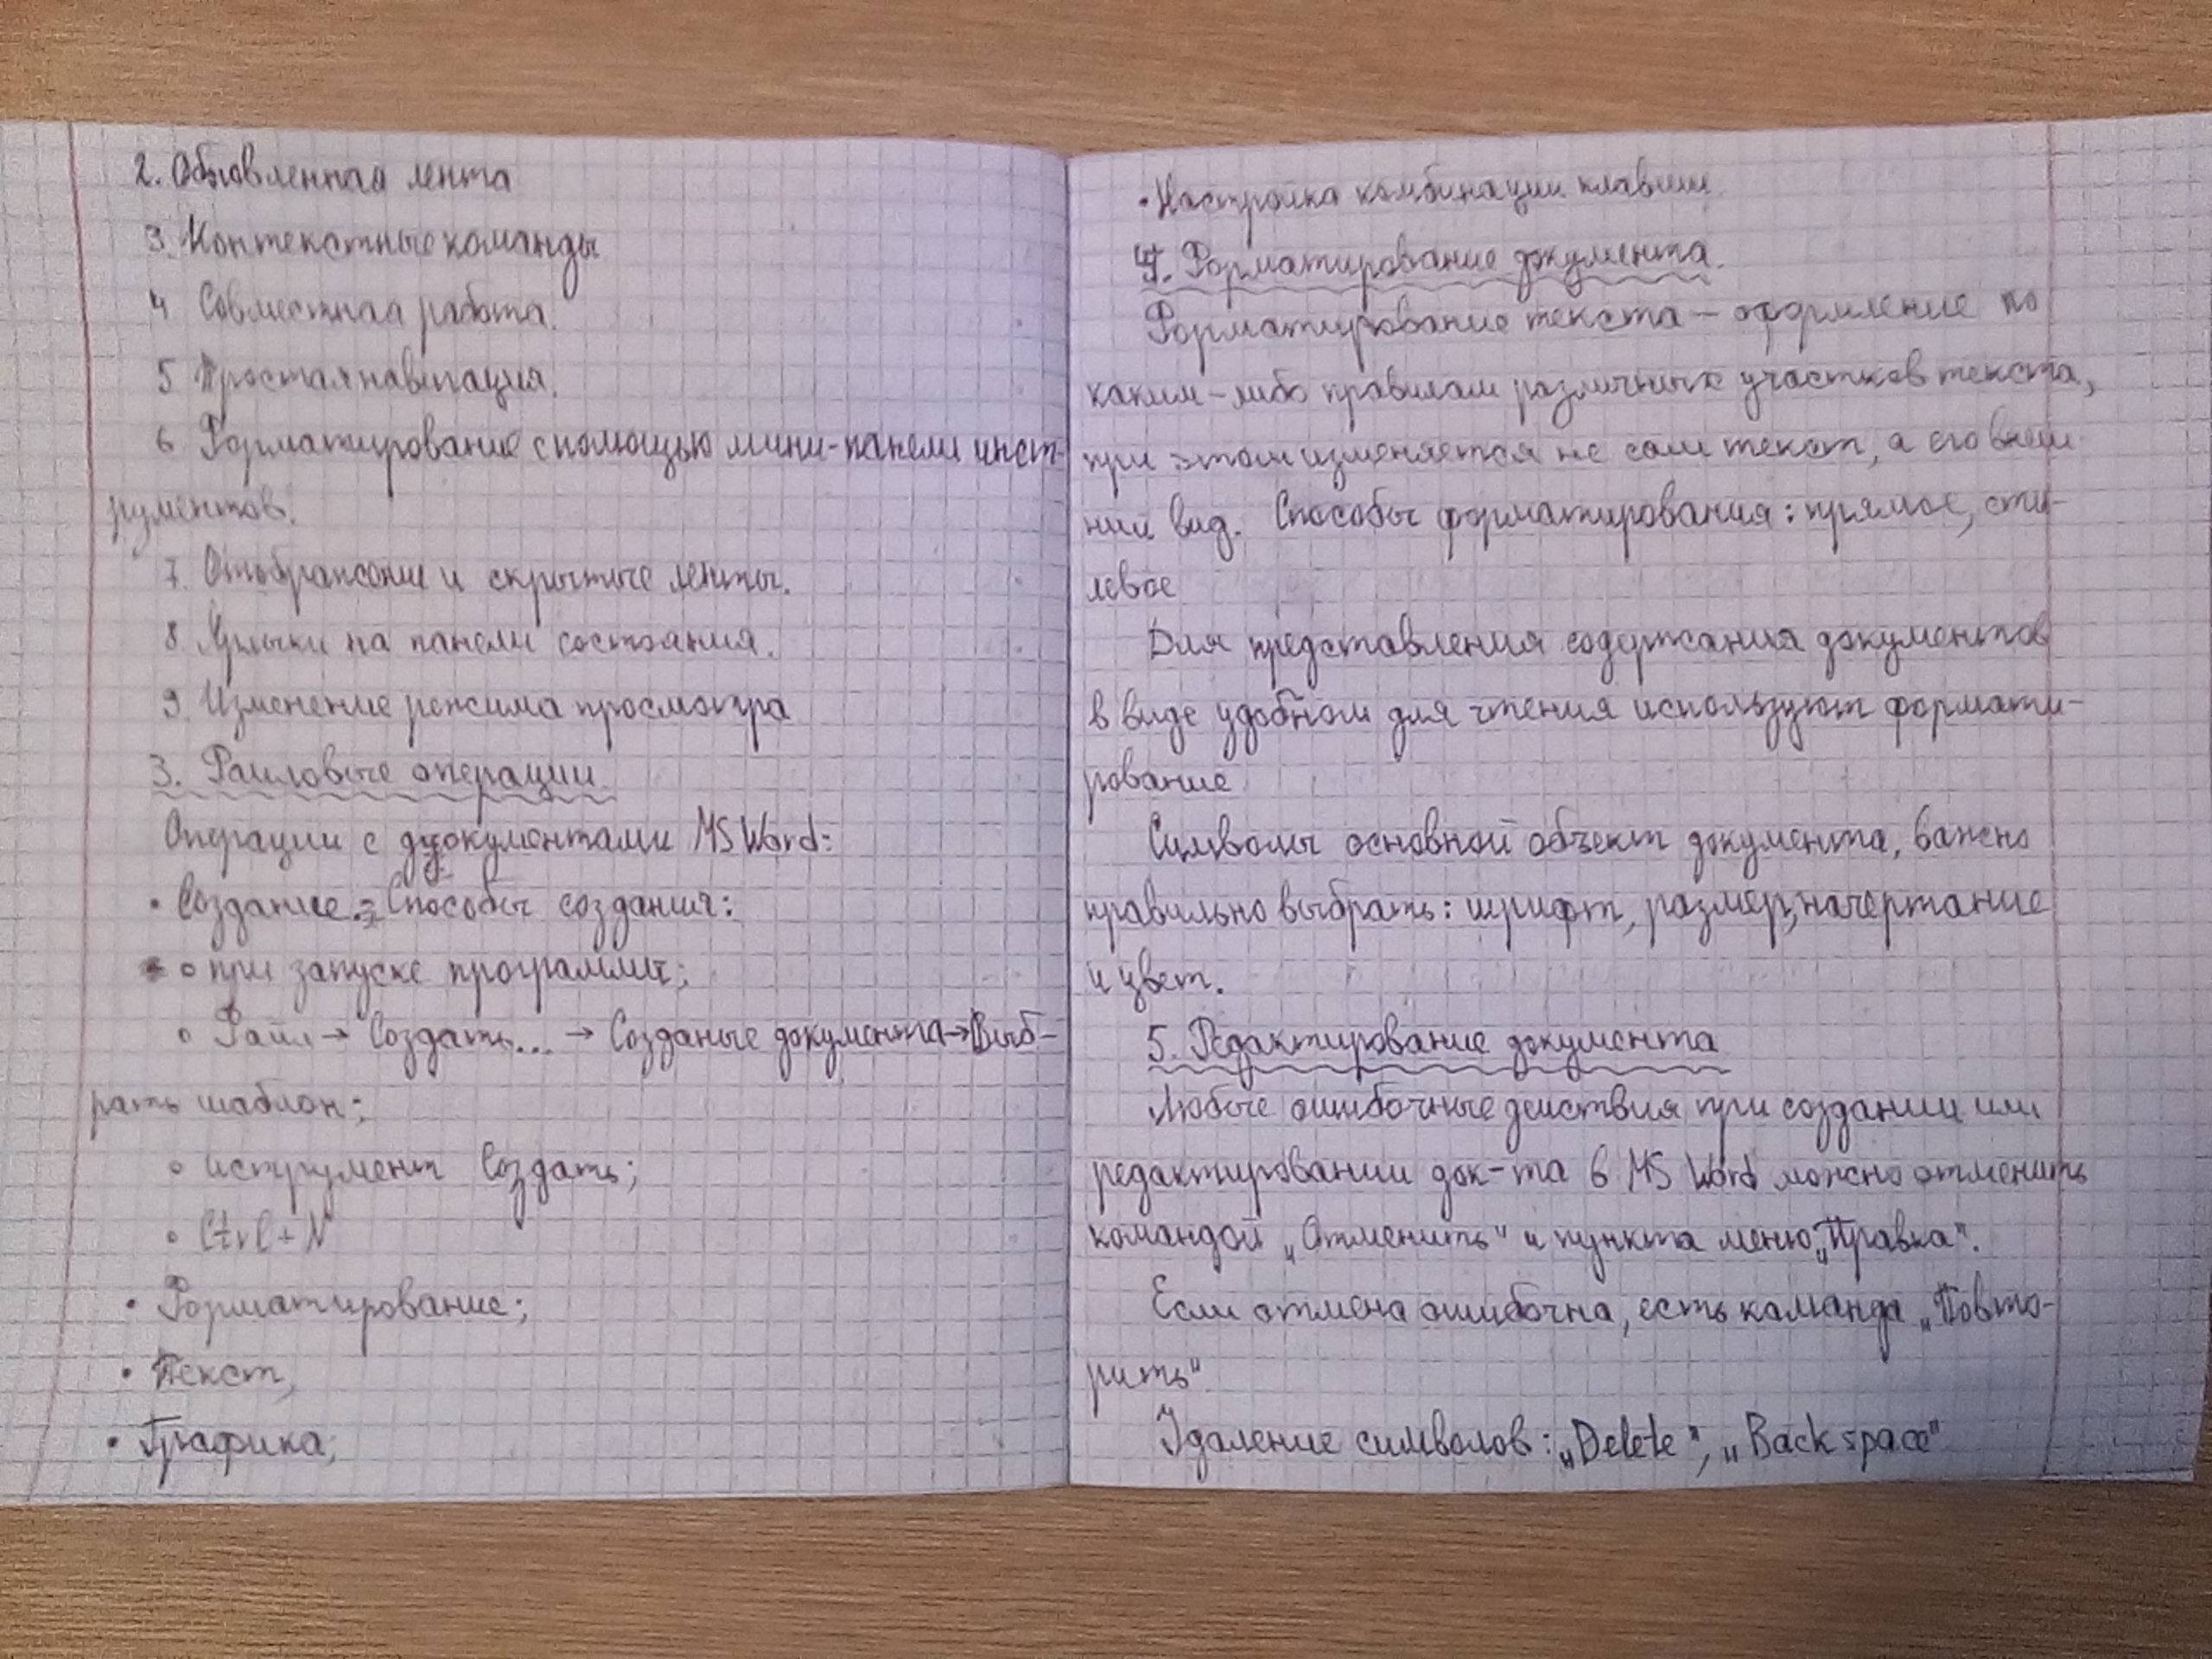 2. Обновленная лента
3. Контекстные команды
4 Совместная работа.
5 Простая навигация.
6 Форматирование с помощью мини-панели инст-
рументов.
7. Отображение и скрытые ленты.
8. Ярлыки на панели состояния.
9. Изменение режима просмотра
3. Файловые операции.
Операции с документами MS Word:
• Создание. Способы создания:
○ при запуске программы;
○ Файл → Создать... → Созданые документа → Выб-
рать шаблон;
○ иструмент Создать;
○ Ctrl + N
• Форматирование;
• Текст,
• Графика;
• Настройка комбинации клавиш.
4. Форматирование документа.
Форматирование текста – оформление по
каким-либо правилам различных участков текста,
при этом изменяется не сам текст, а его внеш
ний вид. Способы форматирования: прямое, сти-
левое
Для представления содержания документов
в виде удобном для чтения используют формати-
рование
Символы основной объект документа, важно
правильно выбрать: шрифт, размер, начертание
и цвет.
5. Редактирование документа
Любые ошибочные действия при создании или
редактировании док-та в MS Word можно отменить
командой „Отменить" и пункта меню „Правка".
Если отмена ошибочна, есть команда „Повто-
рить"
Удаление символов: „Delete", „Backspace"